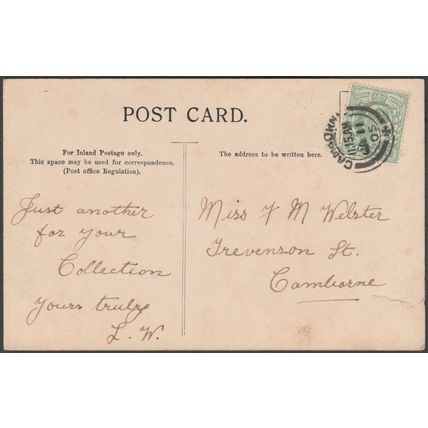 POST CARD.
For Inland Postage only.
This space may be used for correspondence.
(Post office Regulation).
The address to be written here.
Just another
for your
Collection
Yours truly
L. W.
Miss F M Webster
Trevenson St.
Camborne
CAMBORNE
11.15 AM
05